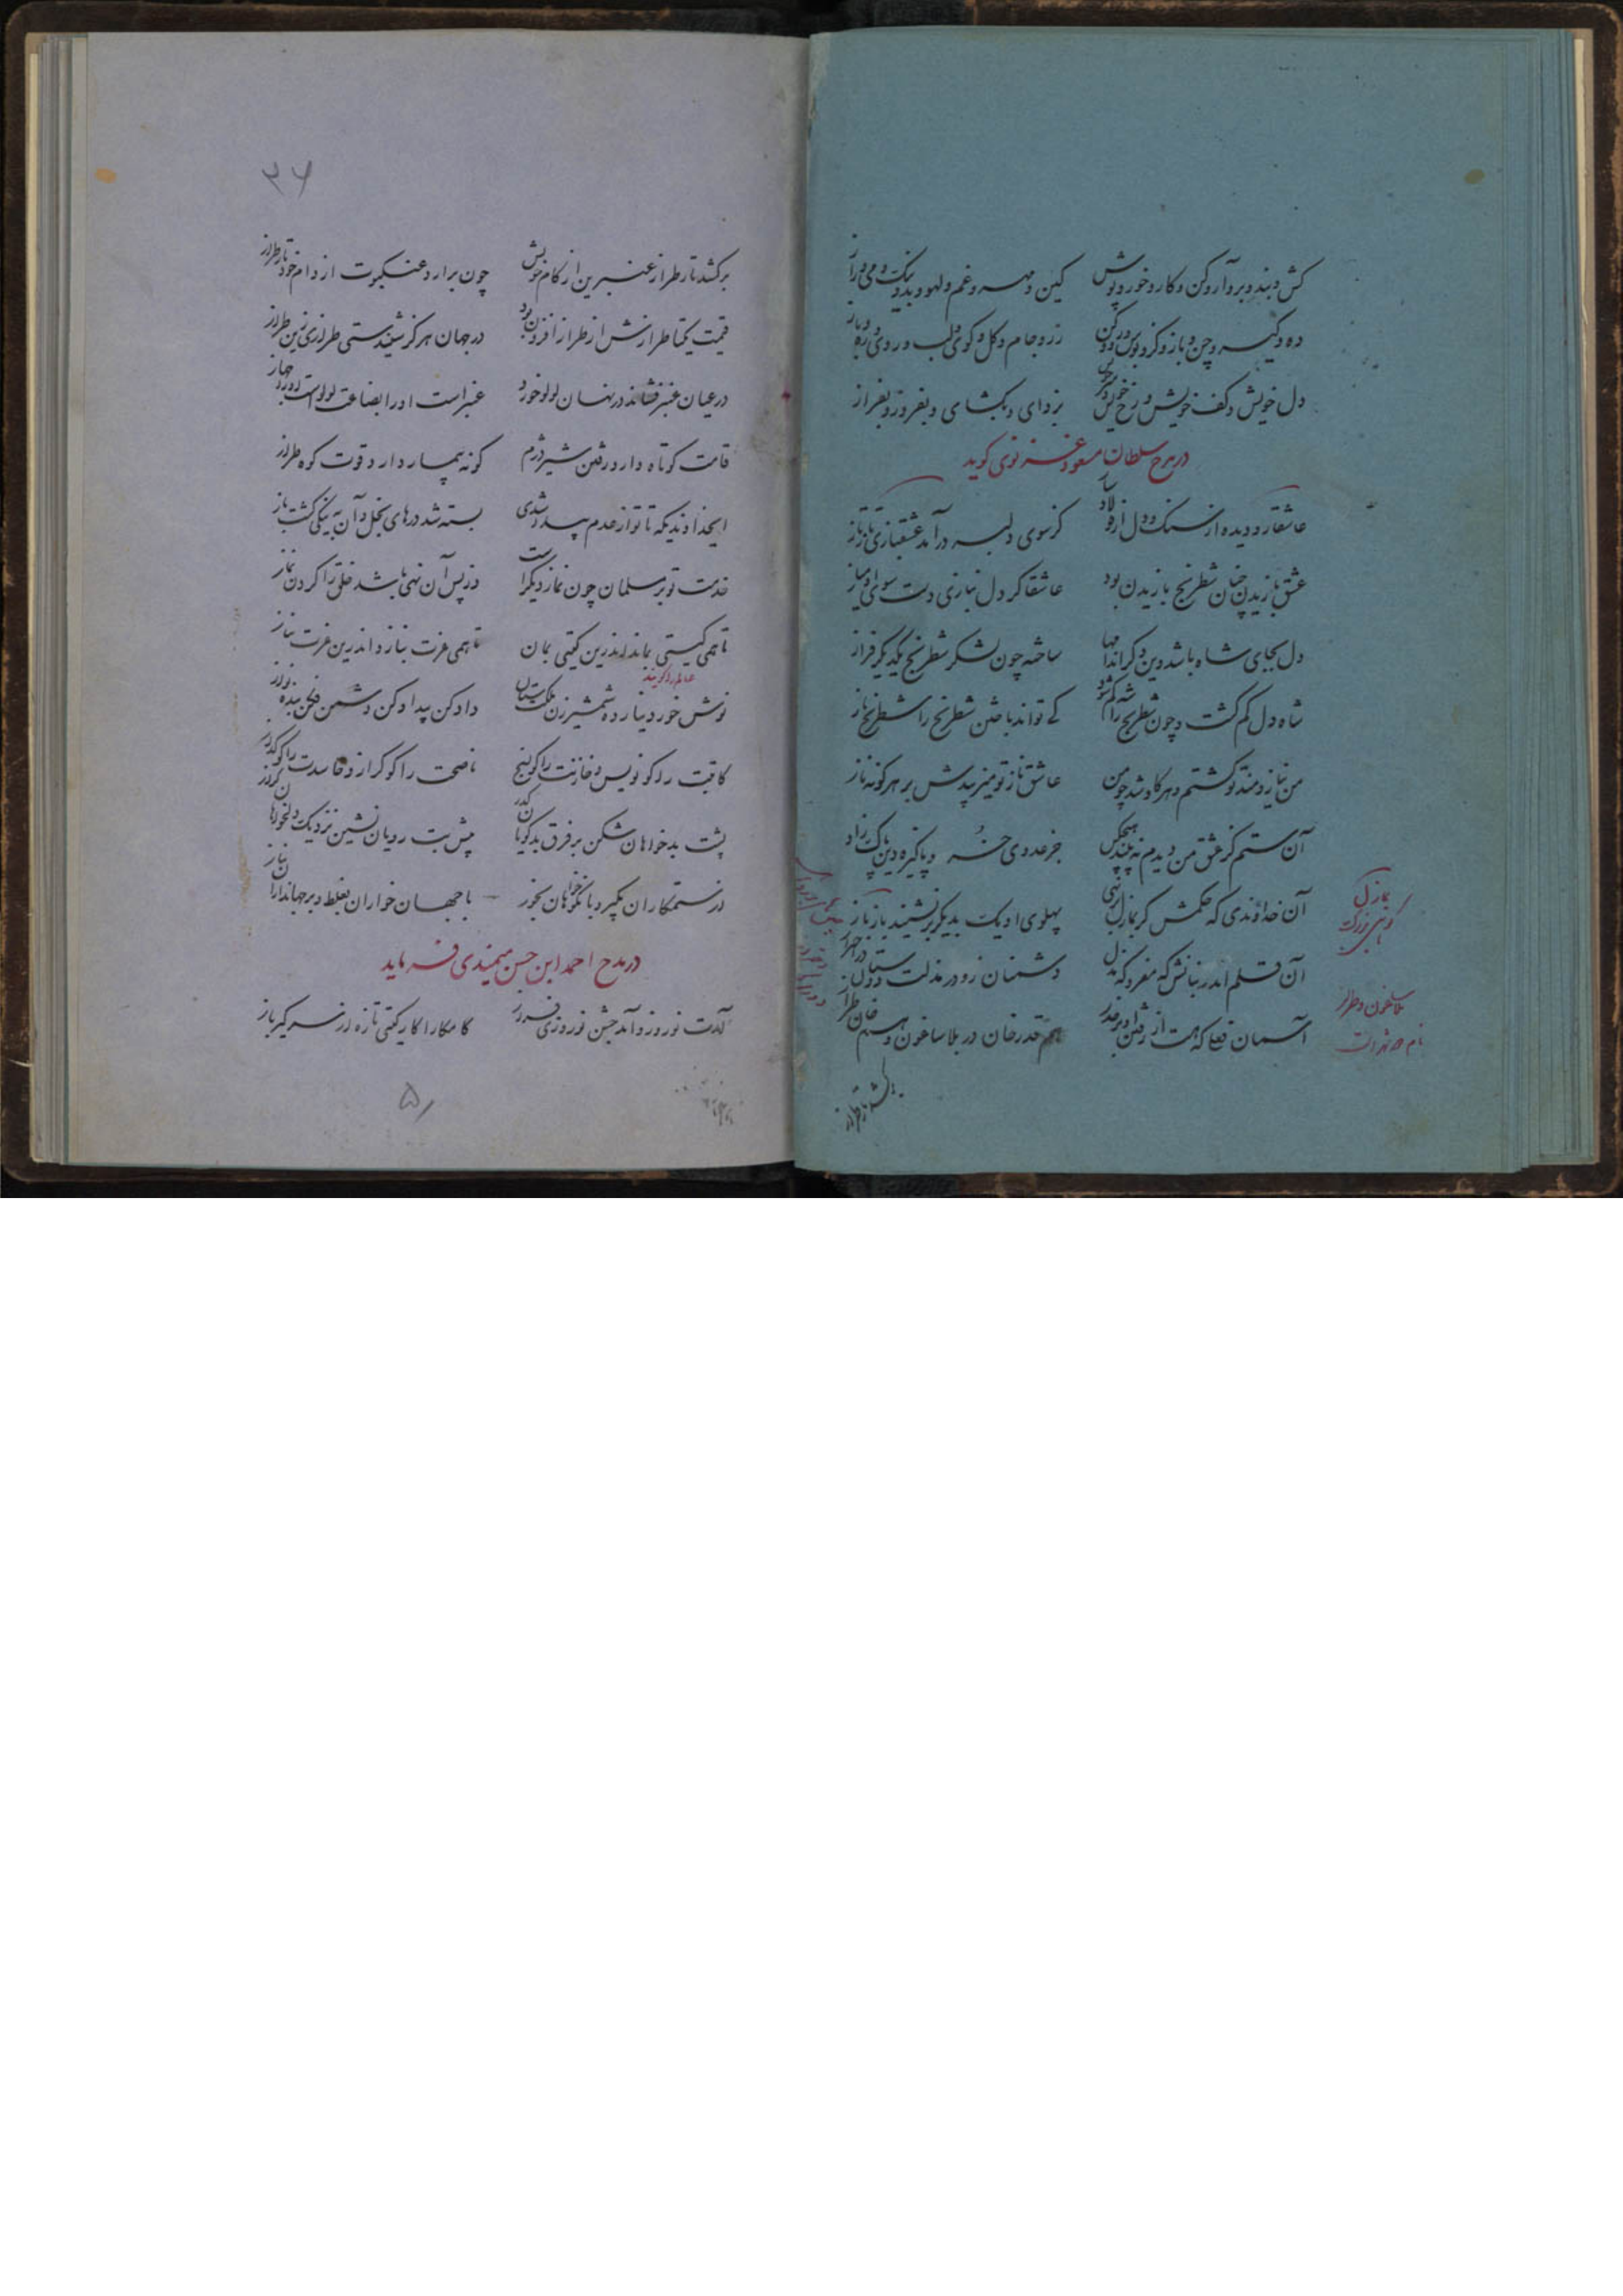 کش و بند و بر و آر و کن و کار و خور و پوش کین و مهر و غم و لهو و بد و نیک و می و راز
ده و گیر و چن و باز و گرو بوس و رو و کن زر و جام و گل و گوی و لب و روی و ره و باز
دل خویش و کف خویش و رخ خویش و سر خویش بزدای و بگشای و بفروز و بفراز
در مدح سلطان مسعود غزنوی گوید
عاشقا رو دیده از سنگ و دل از فولاد ساز کز سوی دلبر درآمد عشقبازی ترکتاز
عشق بازیدن چنان شطرنج بازیدن بود عاشقا گر دل نبازی دست سوی او میاز
دل بجای شاه باشد وین دگر اندامها ساخته چون لشکر شطرنج یکدیگر فراز
شاه دل گم گشت و چون شطرنج را شه گم شود کی تواند باختن شطرنج را شطرنج باز
من نیازومند تو گشتم و هر کاو شد چو من عاشق ناز تو می‌زیبدش بر هر گونه ناز
آن ستم کز عشق من دیدم نه بیند هیچکس جز عدوی خسرو پاکیزه دین پاک زاد
آن خداوندی که حکمش گر بمازل بر نهی پهلوی او یک بدیگر بر نشیند باز باز
آن قلم اندر بنانش که معز و که مذل دشمنان زو در مذلت دوستان در اعتزاز
آسمان فعلی که هست از رفتن او بر حذر هم قدرخان در بلاساغون و هم خان طراز
مازل
کوهی بزرگ
بلاساغون و طراز
نام دو شهر است
برکشد تار طراز
۳۶
برکشد تار طراز عنبرین از کام خویش چون برارد عنکبوت از دام خود تار طراز
قیمت یکتا طرازش از طراز افزون بود در جهان هرگز شنیدستی طرازی زین طراز
در عیان عنبر فشاند در نهان لولو خورد عنبر است او را بضاعت لولو است او را جهاز
قامت کوتاه دارد رفتن شیر دژم گونه بیمار دارد قوت کوه طراز
ایخداوندیکه تا تو از عدم پیدا شدی بسته شد درهای بخل و آن نیکی گشت باز
خدمت تو بر مسلمان چون نماز دیگر است وز پس آن نهی باشد خلق را کردن نماز
تا همی گیتی بماند اندرین گیتی بمان تا همی عزت بنازد اندرین عزت بناز
نوش خور دینار ده شمشیر زن ملکت ستان داد کن بیداد کن دشمن فکن بنده نواز
کاتبت را گو نویس و خازنت را گو بسنج ناصحت را گو گراز و حاسدت را گو گداز
پشت بدخواهان شکن بر فرق بدگویان گذر پیش بت رویان نشین نزدیک دلخواهان گراز
از ستمکاران بگیر و با نکوخواهان بخور با جهان خواران بغلط و بر جهانداران بتاز
در مدح احمد ابن حسن میمندی فرماید
آمدت نوروز و آمد جشن نوروزی فراز کامکارا کار گیتی تازه از سر گیر باز
۵